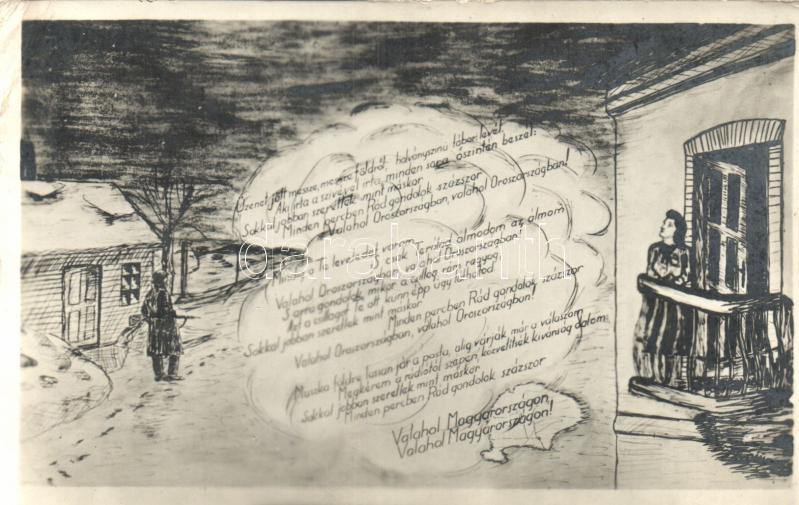 Üzenet jött messze, messze földről, halványszínű tábori levél,
Aki írta a szívével írta, minden sora őszintén beszél:
Sokkal jobban szeretlek mint máskor
Minden percben Rád gondolok százszor
Valahol Oroszországban, valahol Oroszországban!
Mindig a Te leveledet várom, csak Terólad álmodom az álmom
Valahol Oroszországban, valahol Oroszországban!
S arra gondolok, mikor a csillag rám ragyog,
Azt a csillagot Te ott kunn épp úgy láthatod
Sokkal jobban szeretlek mint máskor
Minden percben Rád gondolok százszor
Valahol Oroszországban, valahol Oroszországban!
Muszka földre lassan jár a posta, alig várják már a válaszom
Megkérem a rádiótól szépen, közvetítsék kívánság dalom:
Sokkal jobban szeretlek mint máskor
Minden percben Rád gondolok százszor
Valahol Magyarországon,
Valahol Magyarországon!
Darabanth